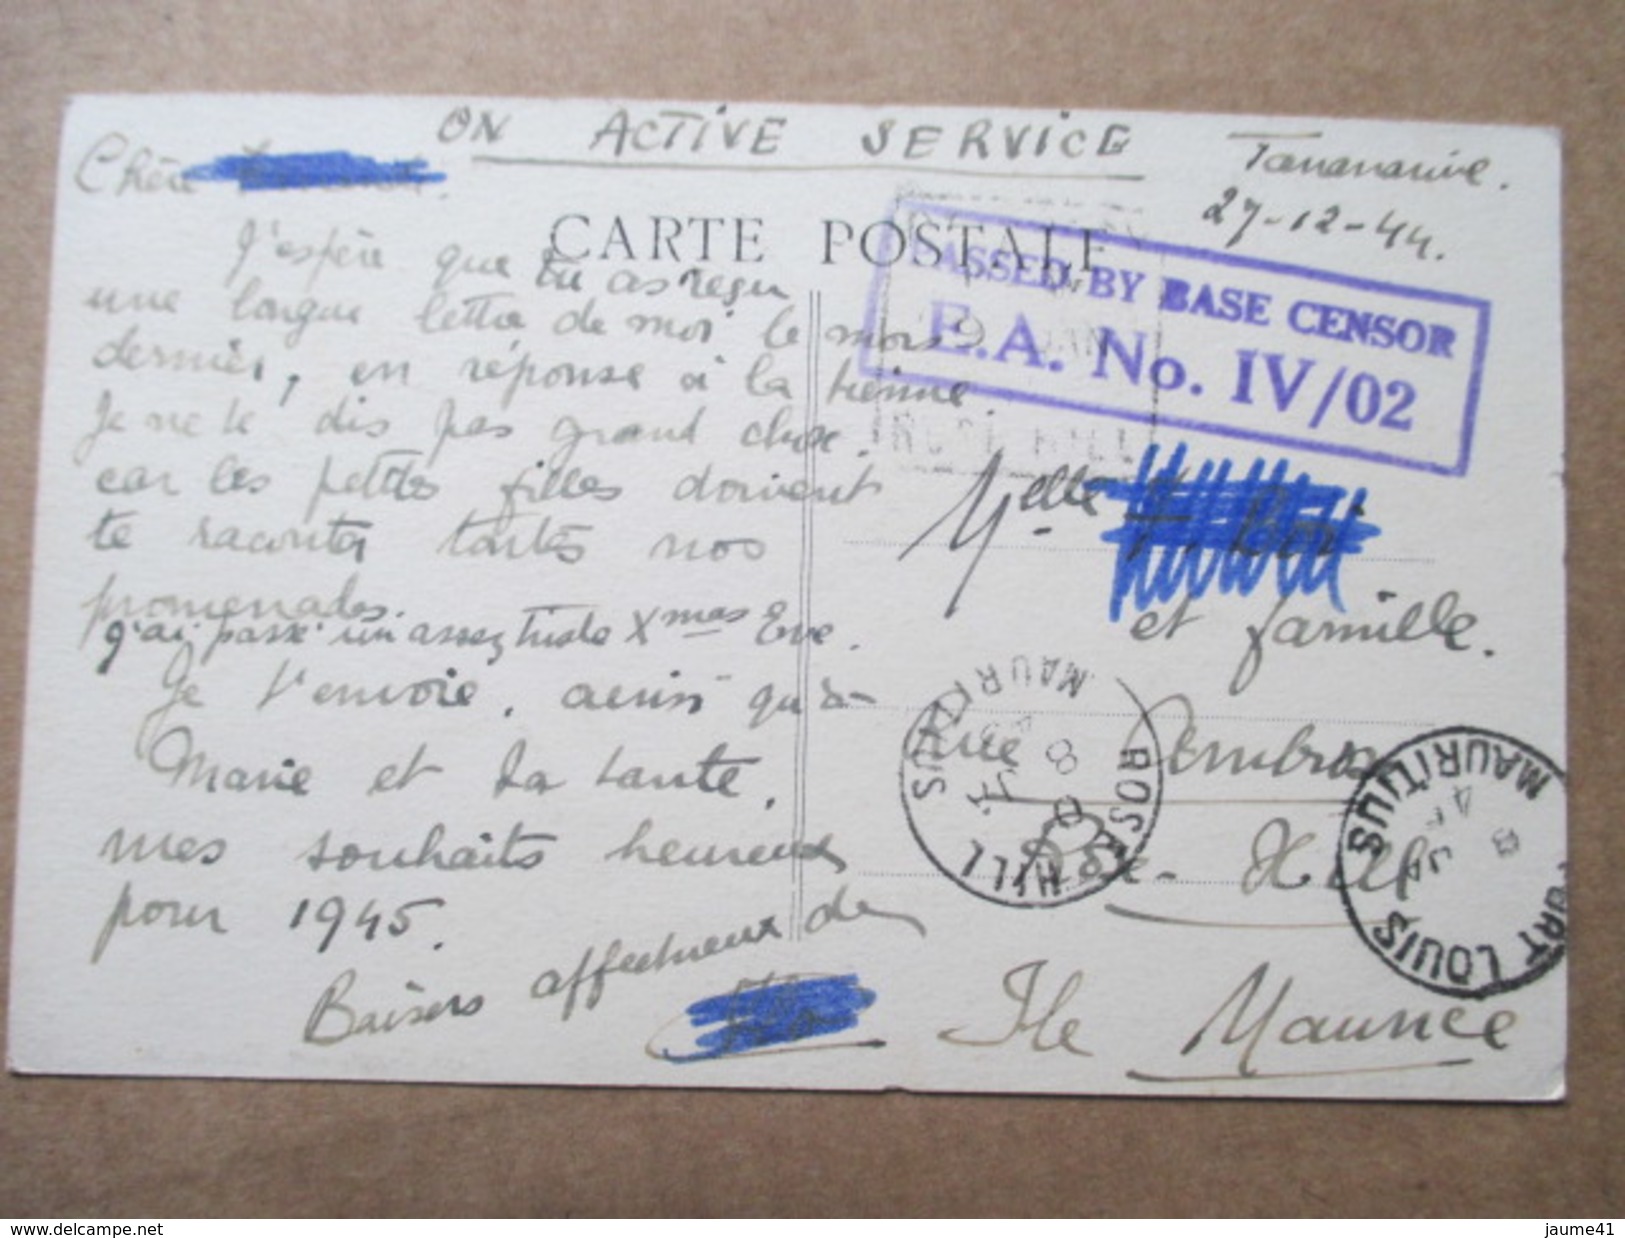 ON ACTIVE SERVICE
Tananarive.
27-12-44.
Chère
CARTE POSTALE
J'espère que tu as reçu
une longue lettre de moi le mois
dernier, en réponse à la tienne.
Je ne te dis pas grand chose,
car les petites filles doivent
te raconter toutes nos
promenades.
J'ai passé un assez triste Xmas Eve.
Je t'envoie, ainsi qu'à
Marie et ta tante,
mes souhaits heureux
pour 1945.
Baisers affectueux de
PASSED BY BASE CENSOR
E.A. No. IV/02
ROSE HILL
Melle
et famille.
Rue
Rose-Hill
Ile Maurice
ROSE HILL
MAURITIUS
8 JA
45
PORT LOUIS
MAURITIUS
8 JA
45
www.delcampe.net
jaume41